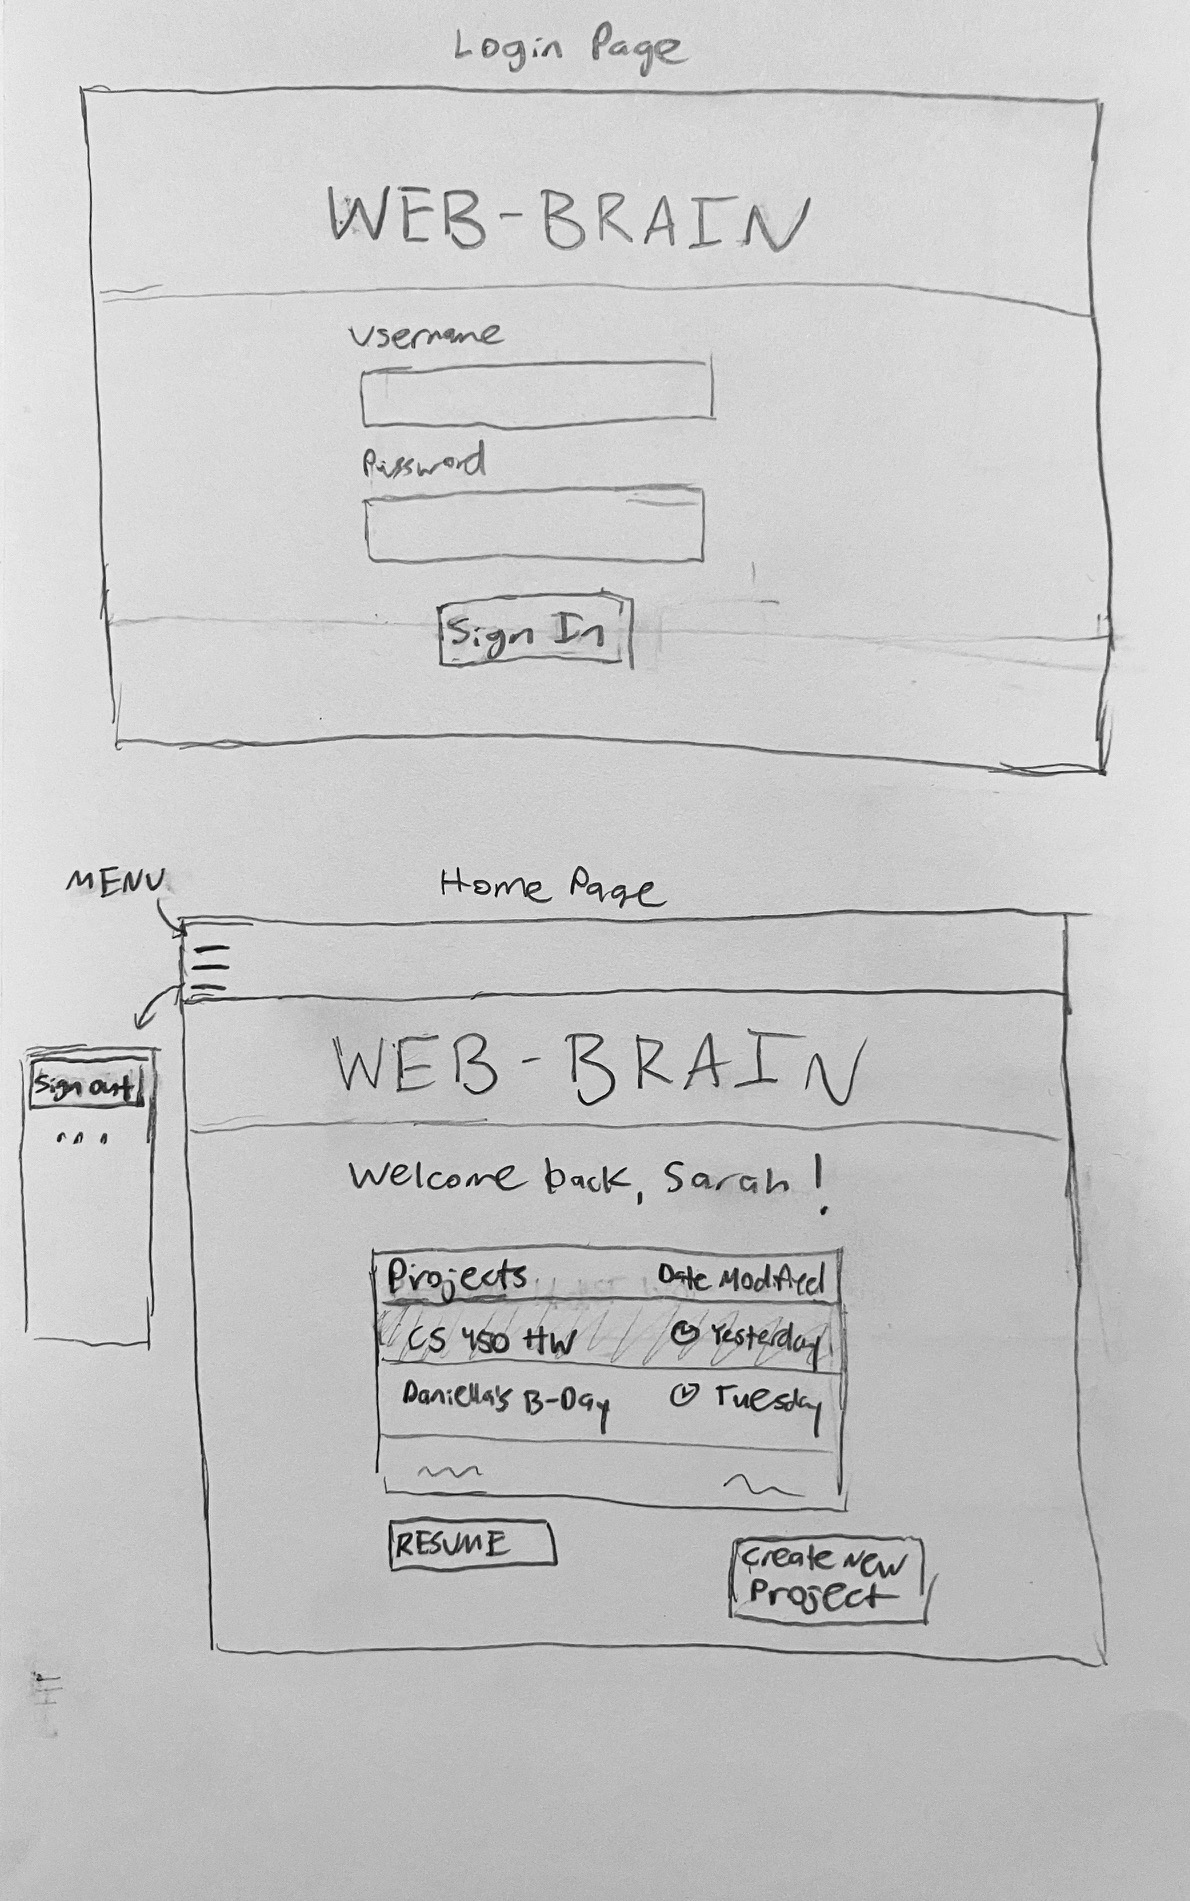 Login Page
WEB-BRAIN
Username
Password
Sign In
MENU
Home Page
WEB-BRAIN
Sign out
...
Welcome back, Sarah!
Projects Date Modified
CS 450 HW Yesterday
Daniella's B-Day Tuesday
RESUME
Create New
Project